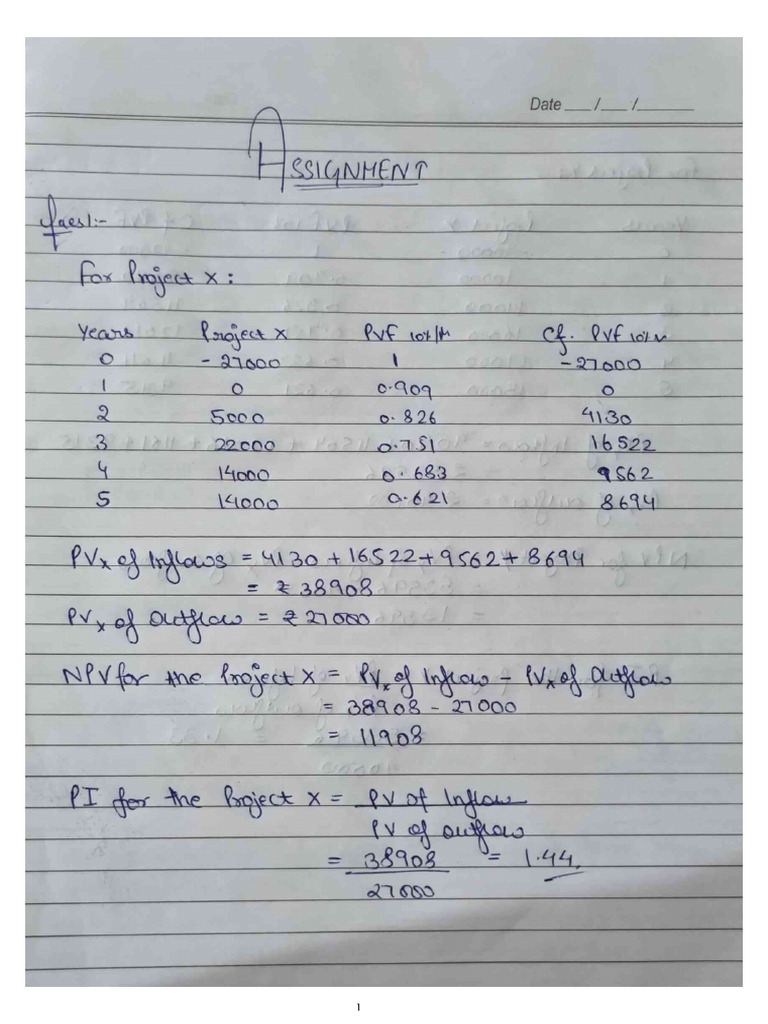 Date ___/___/______
ASSIGNMENT
Ques1:-
For Project X :
Years Project X PVF 10% Cf. PVF 10%
0 - 27000 1 - 27000
1 0 0.909 0
2 5000 0.826 4130
3 22000 0.751 16522
4 14000 0.683 9562
5 14000 0.621 8694
PVx of Inflows = 4130 + 16522 + 9562 + 8694
= ₹ 38908
PVx of Outflow = ₹ 27000
NPV for the Project X = PVx of Inflow - PVx of Outflow
= 38908 - 27000
= 11908
PI for the Project X = PV of Inflow
PV of outflow
= 38908 = 1.44.
27000
1